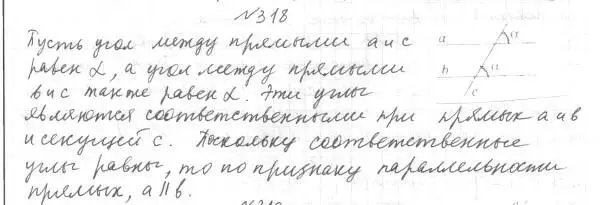 №318
Пусть угол между прямыми a и c
равен α, а угол между прямыми
b и c также равен α. Эти углы
являются соответственными при прямых a и b
и секущей c. Поскольку соответственные
углы равны, то по признаку параллельности
прямых, a || b.
a α
b α
c